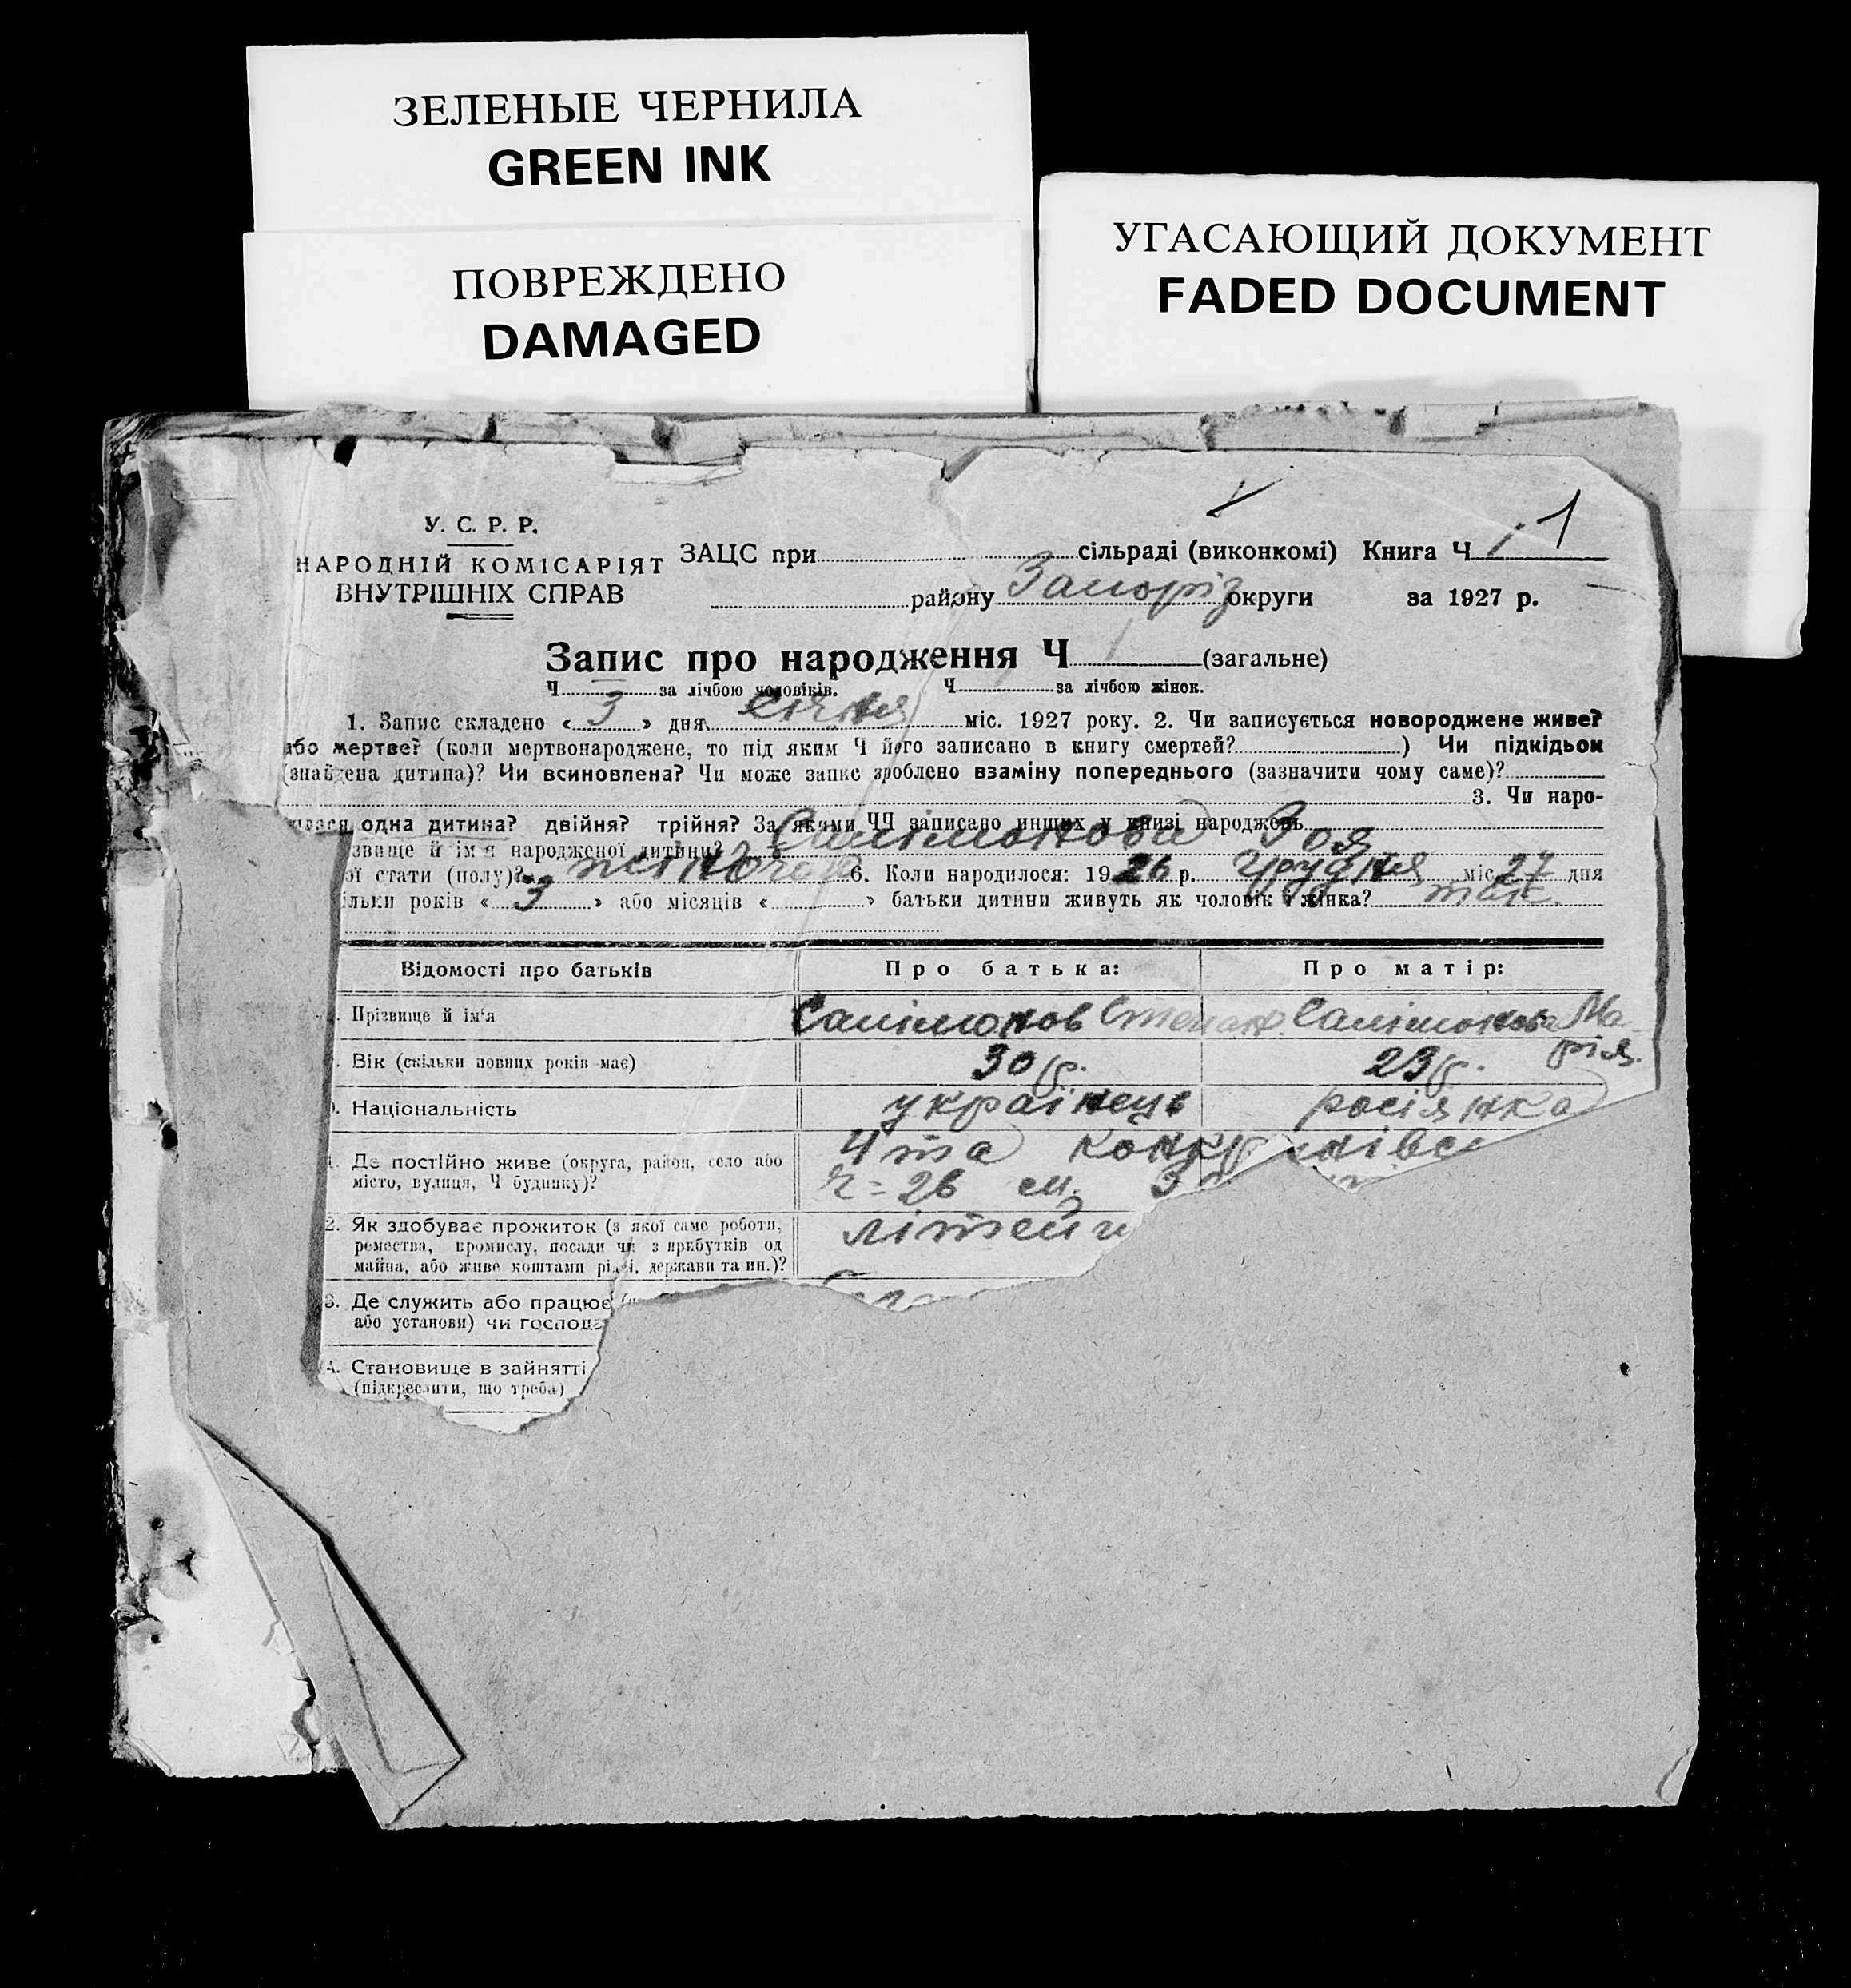 ЗЕЛЕНЫЕ ЧЕРНИЛА
GREEN INK
ПОВРЕЖДЕНО
DAMAGED
УГАСАЮЩИЙ ДОКУМЕНТ
FADED DOCUMENT
У. С. Р. Р.
НАРОДНІЙ КОМІСАРІЯТ
ВНУТРІШНІХ СПРАВ
ЗАЦС при сільраді (виконкомі) Книга Ч 1
району Запоріз округи за 1927 р.
Запис про народження Ч 1 (загальне)
Ч за лічбою чоловіків. Ч за лічбою жінок.
1. Запис складено « 3 » дня січня міс. 1927 року. 2. Чи записується новороджене живе?
або мертве? (коли мертвонароджене, то під яким Ч його записано в книгу смертей? ) Чи підкідьок
(знайдена дитина)? Чи всиновлена? Чи може запис зроблено взаміну попереднього (зазначити чому саме)?
3. Чи наро-
одна дитина? двійня? трійня? За якими ЧЧ записано инших у книзі народжень
звище й ім'я народженої дитини? Салімонова Зоя
ої стати (полу)? жіночої 6. Коли народилося: 1926 р. грудня міс. 27 дня
ільки років « 3 » або місяців « » батьки дитини живуть як чоловік і жінка? так.
Відомості про батьків Про батька: Про матір:
Прізвище й ім'я Салімонов Степан Салімонова Ма-
рія.
Вік (скільки повних років має) 30 р. 23 р.
Національність українець росіянка
Де постійно живе (округа, район, село або
місто, вулиця, Ч будинку)?
4 та
ч = 26
2. Як здобуває прожиток (з якої саме роботи,
ремества, промислу, посади чи з прибутків од
майна, або живе коштами рідні, держави та ин.)?
літейн
3. Де служить або працює
або установи) чи господа
4. Становище в зайнятті
(підкреслити, що треба)